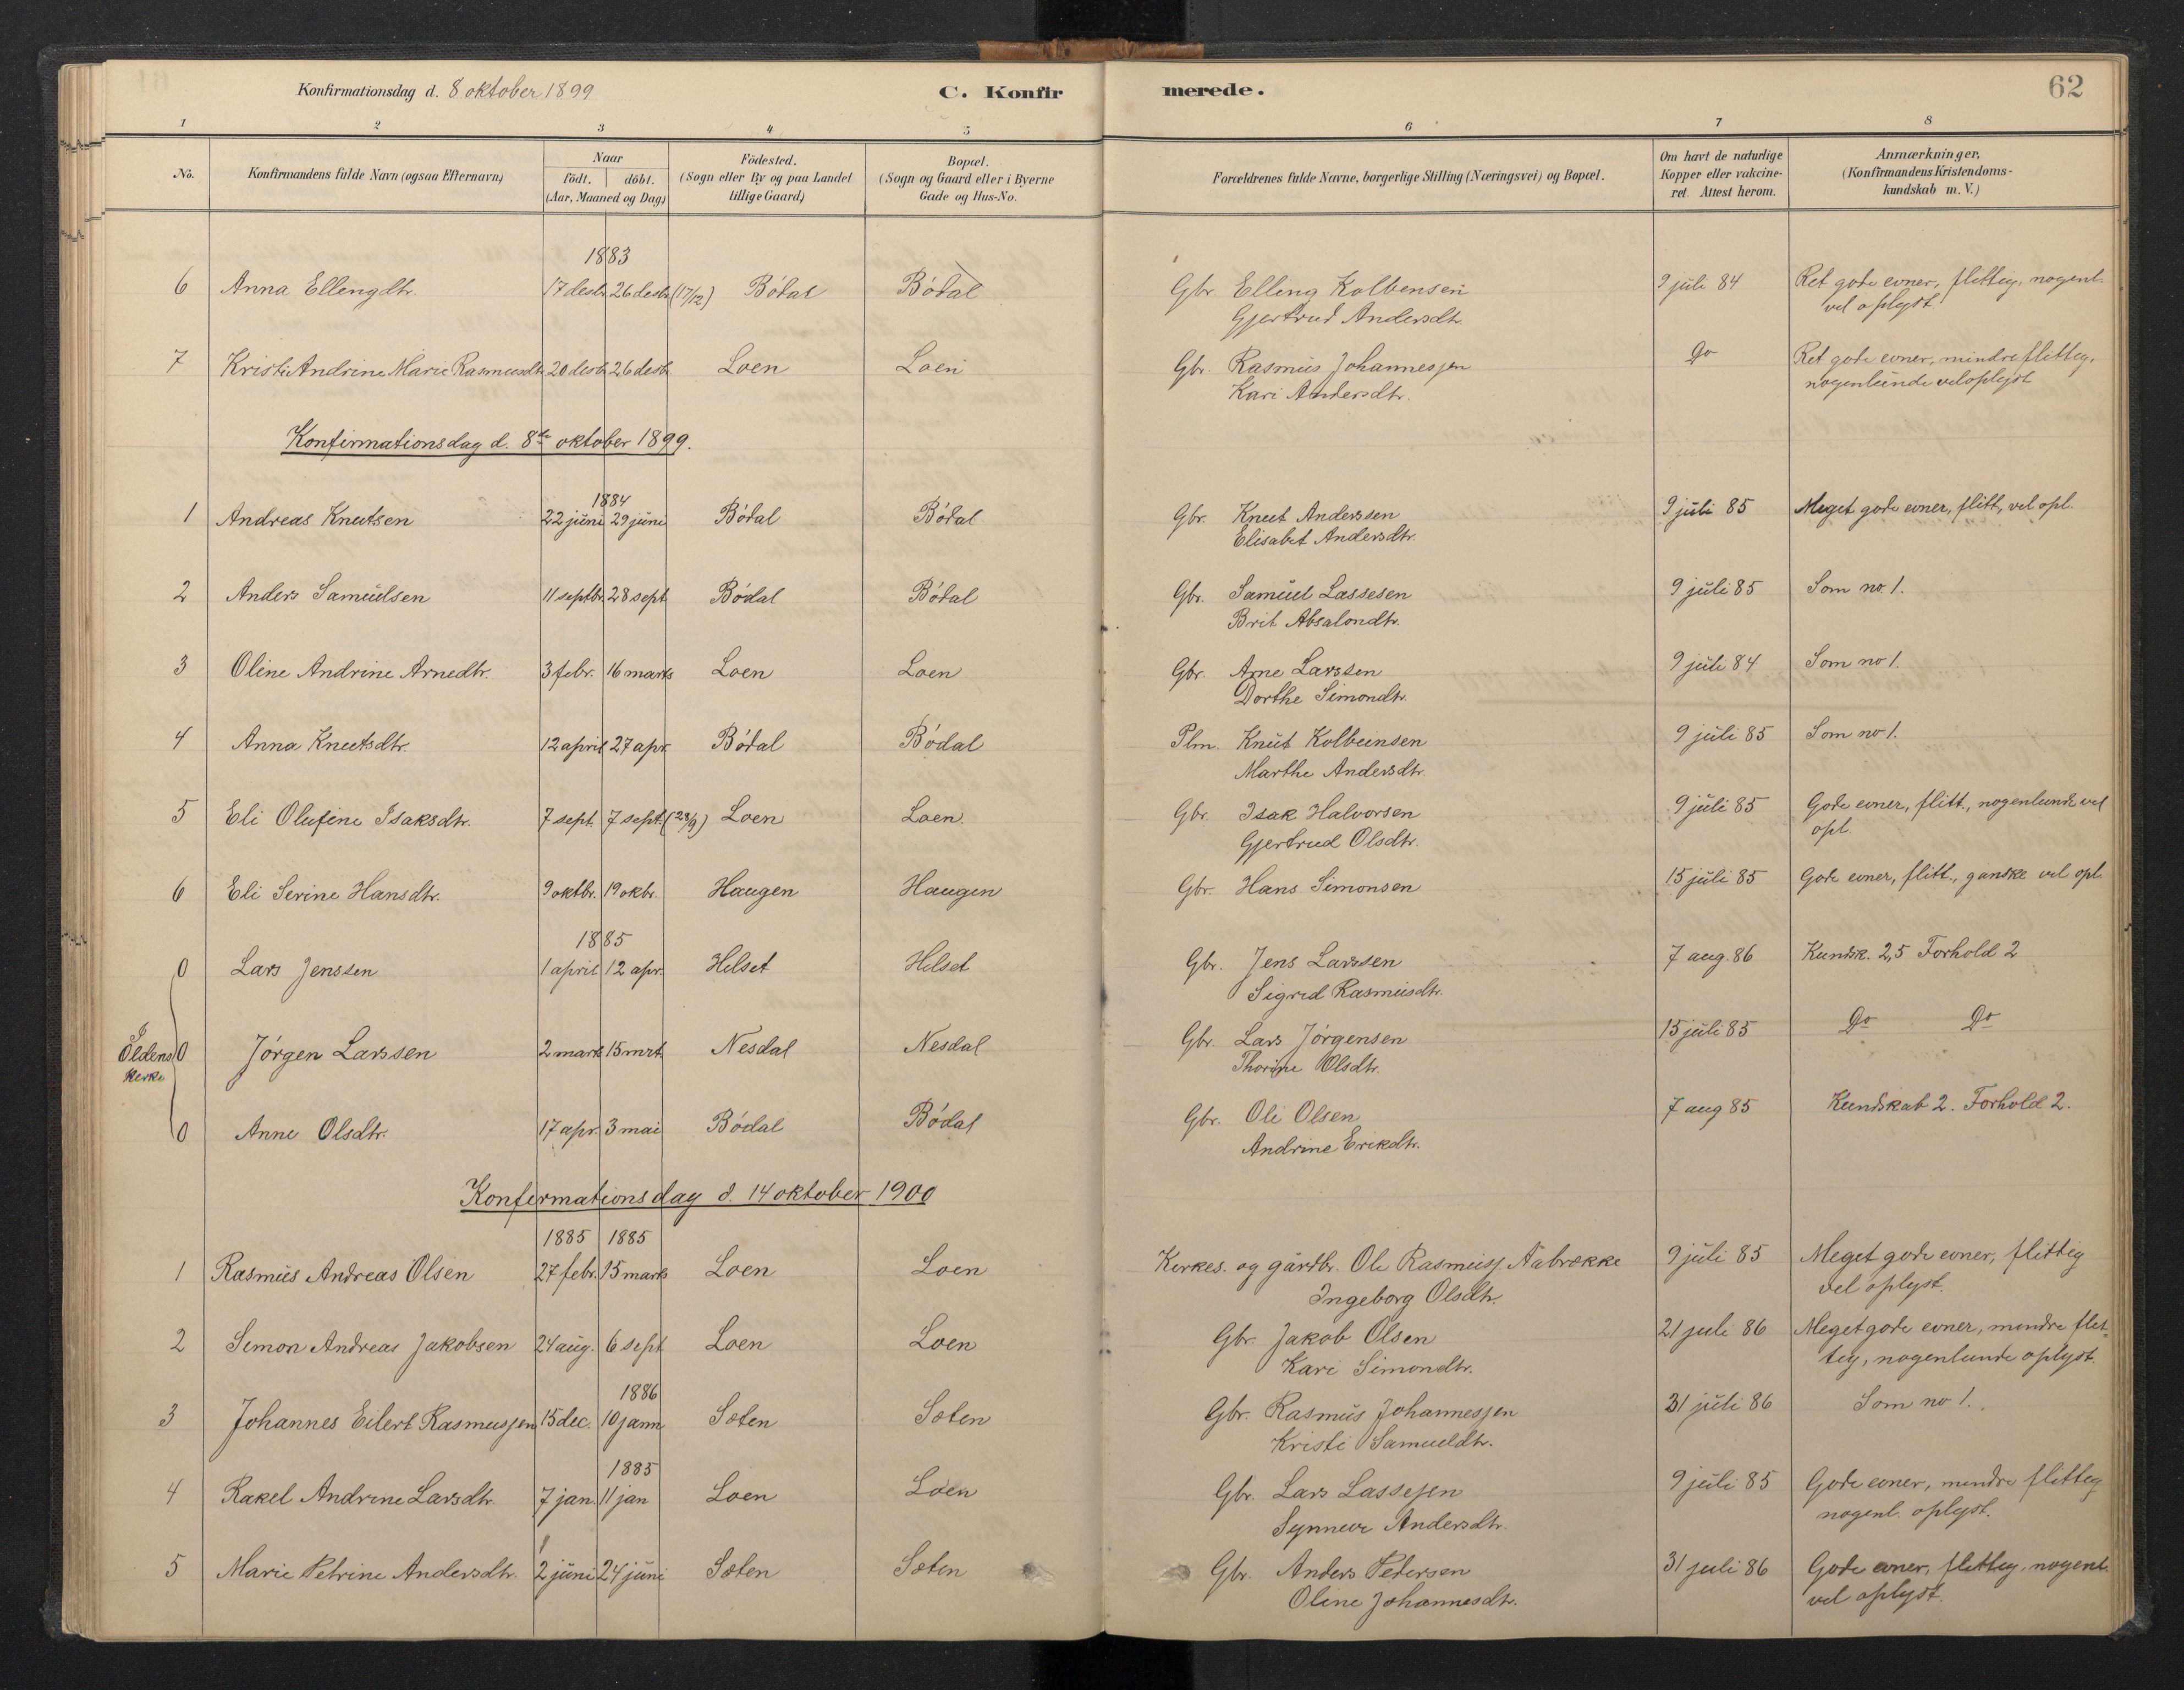 Konfirmationsdag d. 8 oktober 1899 C. Konfirmerede. 62
1 2 3 4 5 6 7 8
No. Konfirmandens fulde Navn (ogsaa Efternavn) Naar födt. döbt. (Aar, Maaned og Dag) Födested. (Sogn eller By og paa Landet tillige Gaard) Bopæl. (Sogn og Gaard eller i Byerne Gade og Hus-No. Forældrenes fulde Navne, borgerlige Stilling (Næringsvei) og Bopæl. Om havt de naturlige Kopper eller vakcineret. Attest herom. Anmærkninger, (Konfirmandens Kristendomskundskab m. V.)
1883
6 Anna Ellengdtr. 17 desbr. 26 desbr. (17/12) Bödal Bödal Gbr. Elling Kolbensen 9 juli 84 Ret gode evner, flittig, nogenl.
Gjertrud Andersdtr. vel oplyst
7 Kristi Andrine Marie Rasmusdtr. 20 desbr. 26 desbr. Loen Loen Gbr. Rasmus Johannessen Do Ret gode evner, mindre flittig,
Kari Andersdtr. nogenlunde vel oplyst
Konfirmationsdag d. 8de oktober 1899.
1884
1 Andreas Knutsen 22 juni 29 juni Bödal Bödal Gbr. Knut Anderssen 9 juli 85 Meget gode evner, flitt, vel opl.
Elisabet Andersdtr.
2 Anders Samuelsen 11 septbr. 28 sept Bödal Bödal Gbr. Samuel Lassesen 9 juli 85 Som no. 1.
Brit Absalondtr.
3 Oline Andrine Arnedtr. 3 febr. 16 marts Loen Loen Gbr. Arne Larssen 9 juli 84 Som no 1.
Dorthe Simondtr.
4 Anna Knutsdtr. 12 april 27 apr. Bödal Bödal Plm. Knut Kolbeinsen 9 juli 85 Som no 1.
Marthe Andersdtr.
5 Eli Olufine Isaksdtr. 7 sept. 7 sept. (28/9) Loen Loen. Gbr. Isak Halvorsen 9 juli 85 Gode evner, flitt., nogenlunde vel
Gjertrud Olsdtr. opl.
6 Eli Serine Hansdtr. 9 oktbr. 19 okbr. Haugen Haugen Gbr. Hans Simonsen 15 juli 85 Gode evner, flitt., ganske vel opl.
1885
0 Lars Jenssen 1 april 12 apr. Helset Helset Gbr. Jens Larssen 7 aug. 86 Kundsk. 2,5 Forhold 2
Sigrid Rasmusdtr.
I Oldens kirke 0 Jörgen Larssen 2 marts 15 mrt. Nesdal Nesdal Gbr. Lars Jörgensen 15 juli 85 Do Do
Thorine Olsdtr.
0 Anne Olsdtr. 17 apr. 3 mai Bödal Bödal Gbr. Ole Olsen 7 aug 85 Kundskab 2. Forhold 2.
Andrine Erikdtr.
Konfirmationsdag d. 14 oktober 1900
1885 1885
1 Rasmus Andreas Olsen 27 febr. 15 marts Loen Loen Kirkes. og gårdbr. Ole Rasmuss. Aabrekke 9 juli 85 Meget gode evner, flittig
Ingeborg Olsdtr. vel oplyst.
2 Simon Andreas Jakobsen 24 aug. 6 sept Loen Loen Gbr. Jakob Olsen 21 juli 86 Meget gode evner, mindre flit-
Kari Simondtr. tig, nogenlunde oplyst.
1886
3 Johannes Eilert Rasmussen 15 dec. 10 jann Sæten Sæten Gbr. Rasmus Johannessen 31 juli 86 Som no 1.
Kristi Samueldtr.
1885
4 Rakel Andrine Larsdtr. 7 jan. 11 jan Loen Loen Gbr. Lars Lassesen 9 juli 85 Gode evner, mindre flittig
Synneve Andersdtr. nogenl. oplyst.
5 Marie Petrine Andersdtr. 2 juni 24 juni Sæten Sæten Gbr. Anders Pedersen 31 juli 86 Gode evner, flittig, nogenl.
Oline Johannesdtr. vel oplyst.